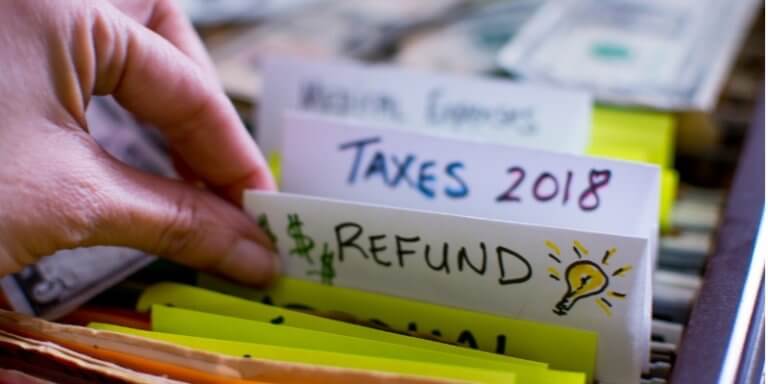 Medical Expenses
TAXES 2018
$$$ REFUND